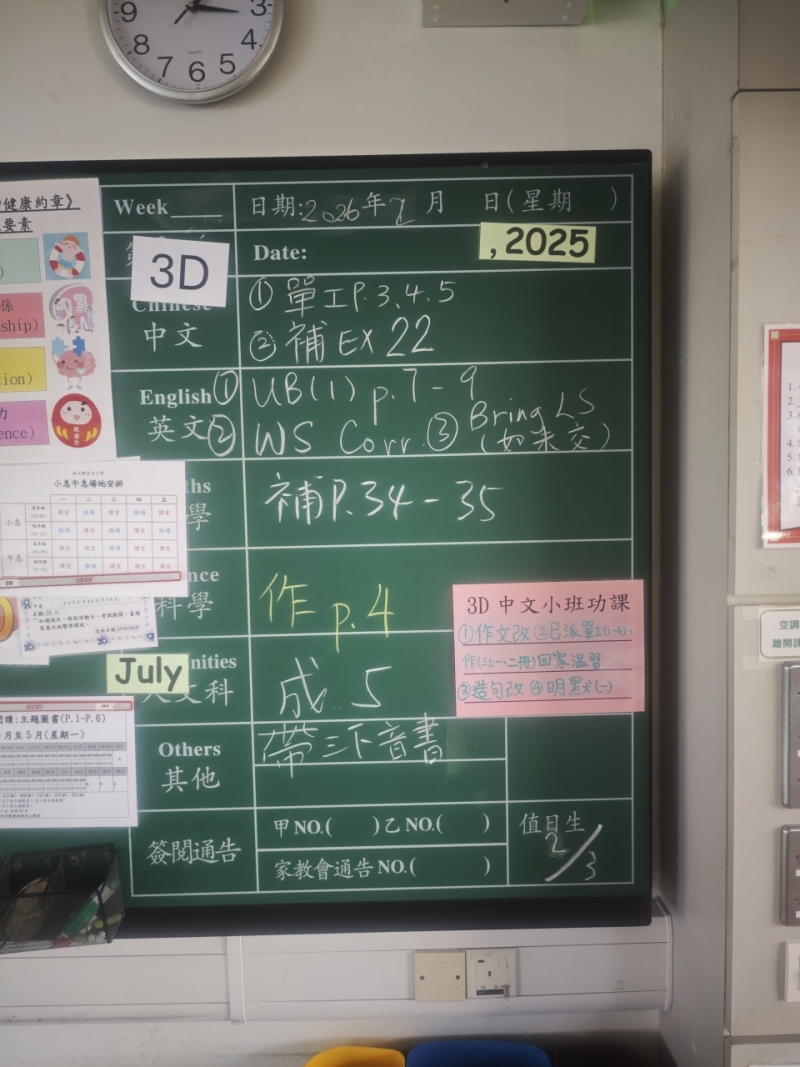 9 3
8 4
7 6 5
健康約章》
要素
係
ship)
tion)
力
ence)
Week
日期:2026年2月 日(星期 )
3D
Date:
, 2025
Chinese
中文
① 單工P.3、4、5
② 補EX 22
English ① UB(1) p.7-9
英文 ② WS Corr. ③ Bring LS
(如未交)
ths
學
補P.34-35
nce
科學
作 p.4
3D中文小班功課
①作文改 ②已派單工(1-5)、
作(三上一、二冊)回家温習
③造句改 ④明默(一)
July
nities
人文科
成.5
小息午息場地安排
一 二 三 四 五
小息
午息
讀:主題圖書(P.1-P.6)
月至5月(星期一)
Others
其他
帶三下音書
簽閱通告
甲NO.( )乙NO.( )
家教會通告NO.( )
值日生
2/3
空調
離開課